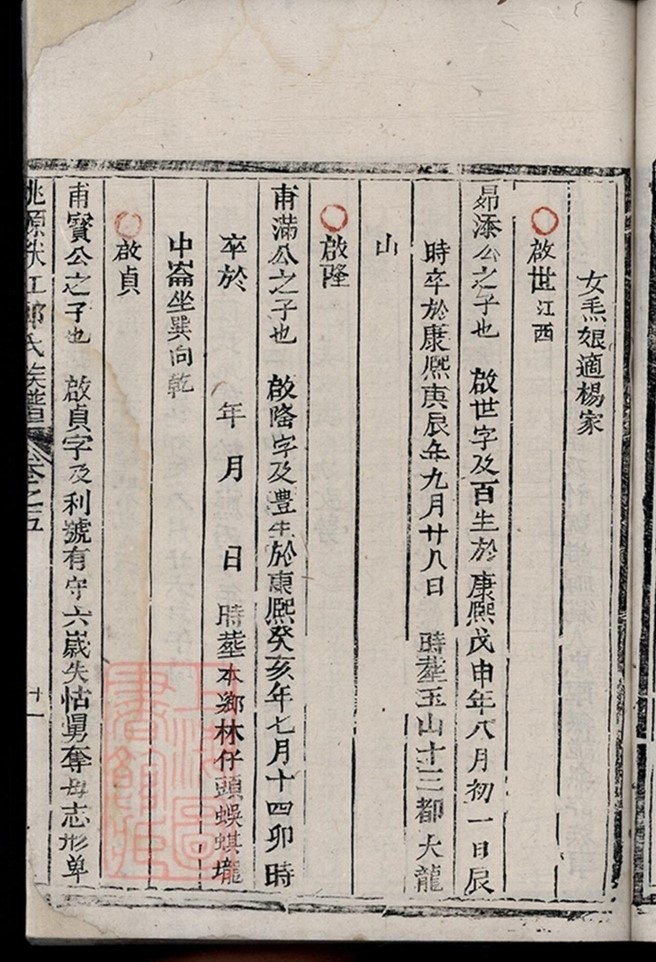 女𤆬娘適楊家
啟世江西
昴添公之子也 啟世字及百生於康熙戊申年八月初一日辰
時卒於康熙庚辰年九月廿八日 時塟玉山十三都大龍
山
啟隆
甫滿公之子也 啟隆字及灃生於康熙癸亥年七月十四卯時
卒於 年 月 日 時塟本鄉林仔頭蜈蜞壠
中崙坐巽向乾
啟貞
甫寳公之子也 啟貞字及利號有守六嵗失怙舅奪母志形单
桃源 江 氏族譜 卷之五 廿一